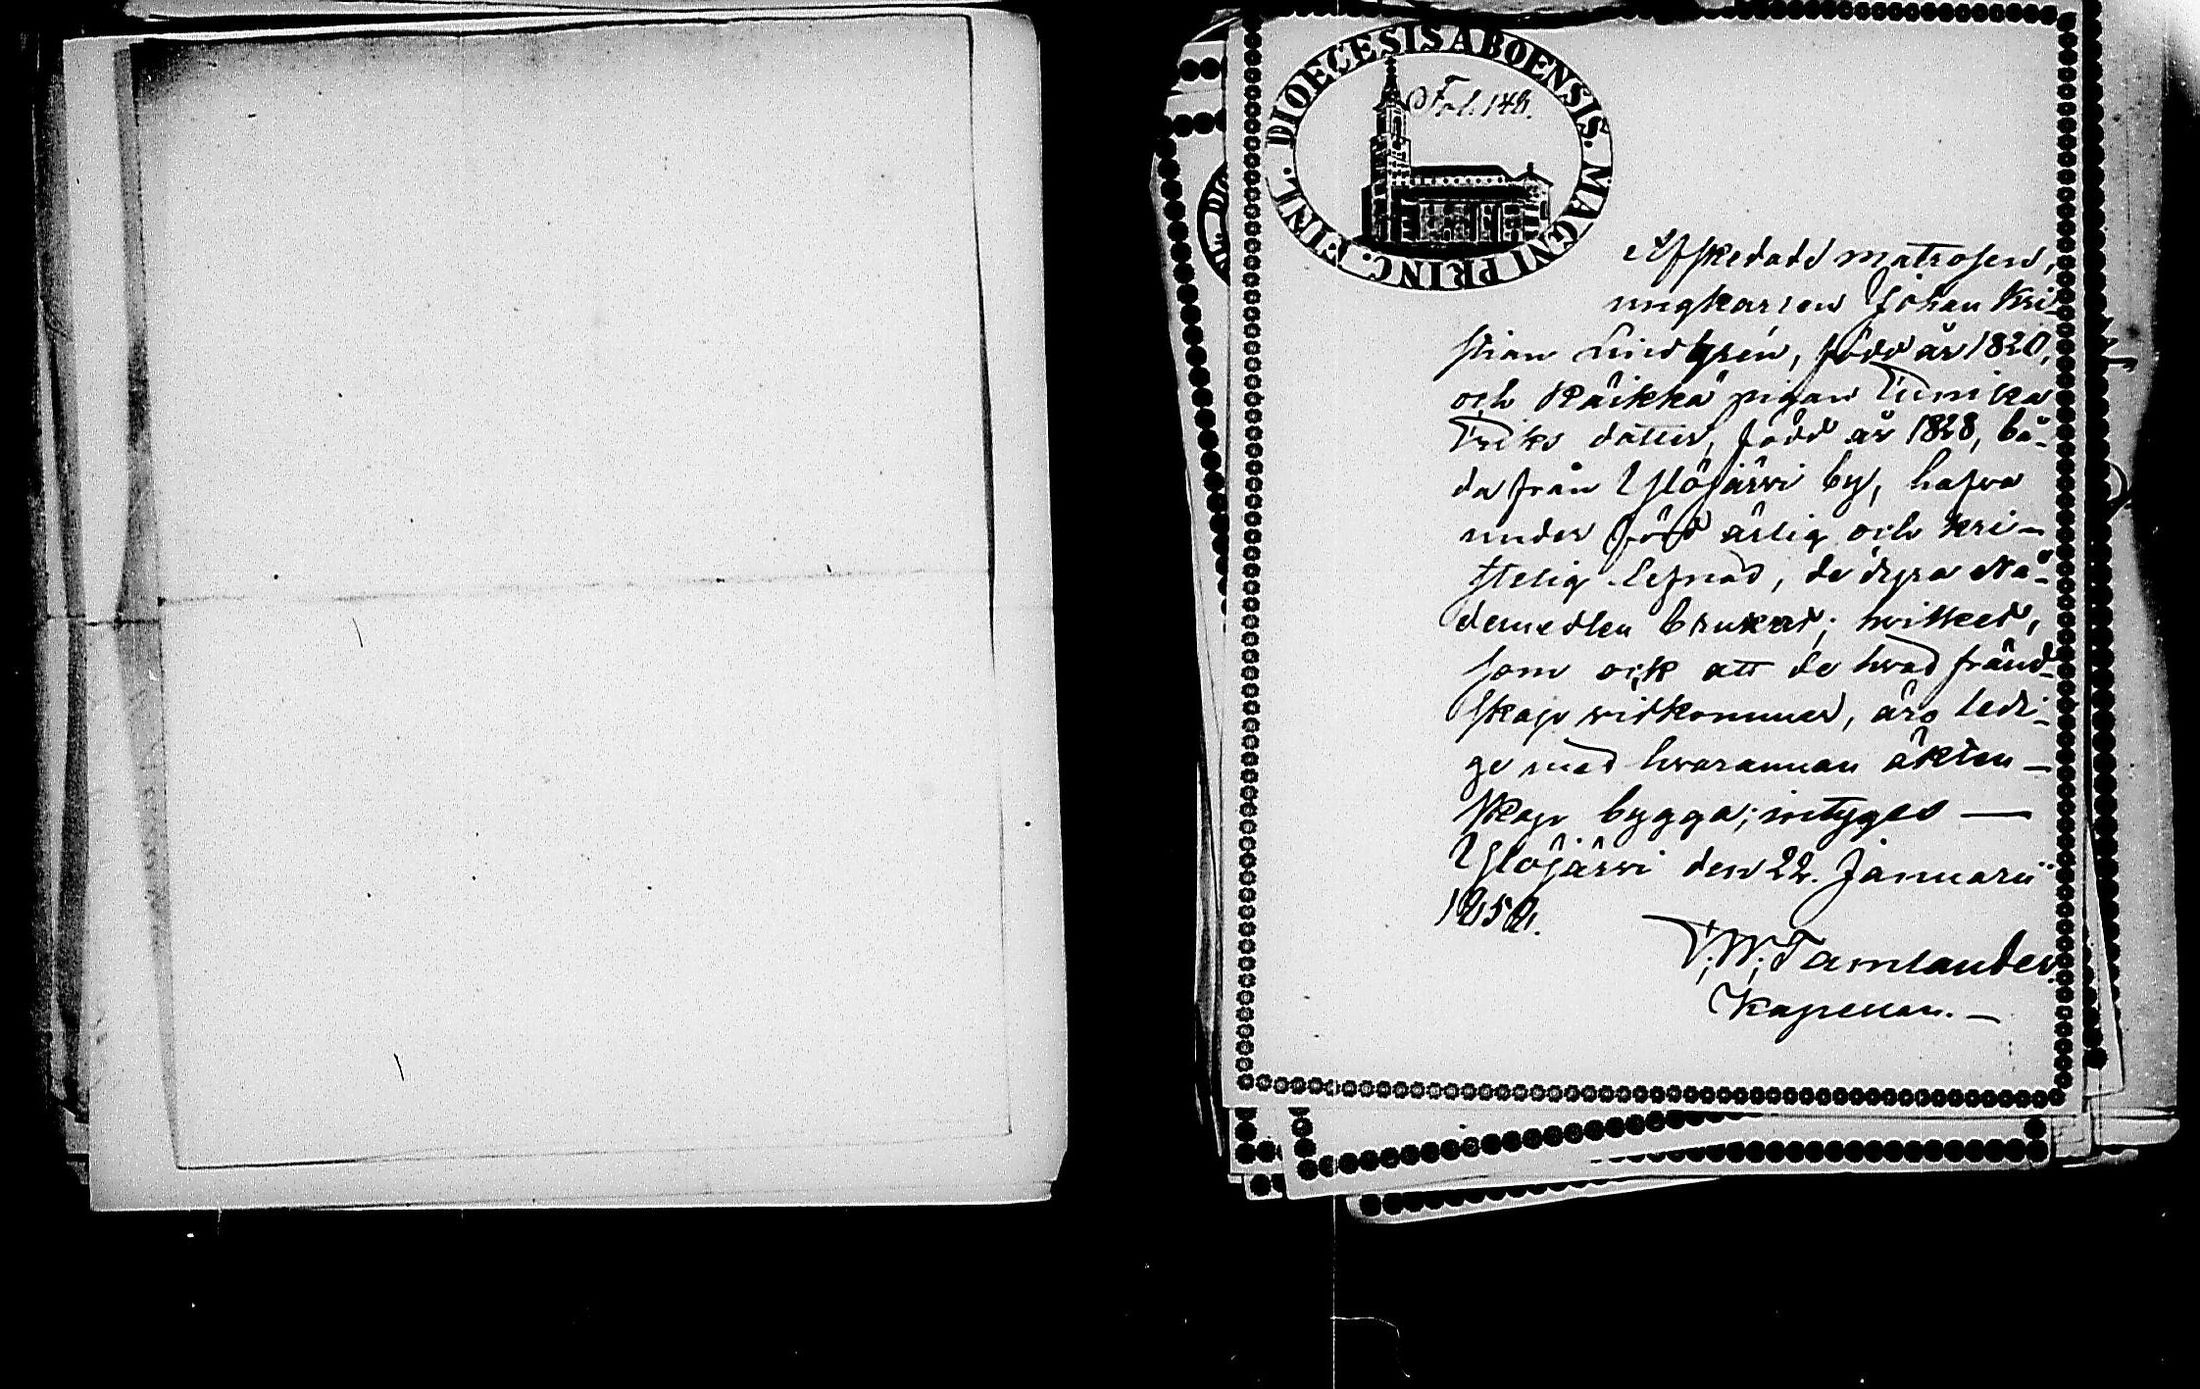 DIOECESIS ABOENSIS. MAGNI PRINC. FINL.
Fol. 148.
Afskedade matrosen,
ungkarlen Johan Kri-
stian Lindgrén, född år 1820,
och Räikkä pigan
Eriks dotter, född år 1828, bå-
da från Ylöjärvi by, hafva
under förd ärlig och kri-
stelig lefnad, de dyra Nå-
demedlen brukat; hvilket,
som ock att de hvad fränd-
skap vidkommer, äro ledi-
ge med hvarannan äkten-
skap bygga; intyges —
Ylöjärvi den 22. Januarii
F; W; Tamlander
Kapellan. —